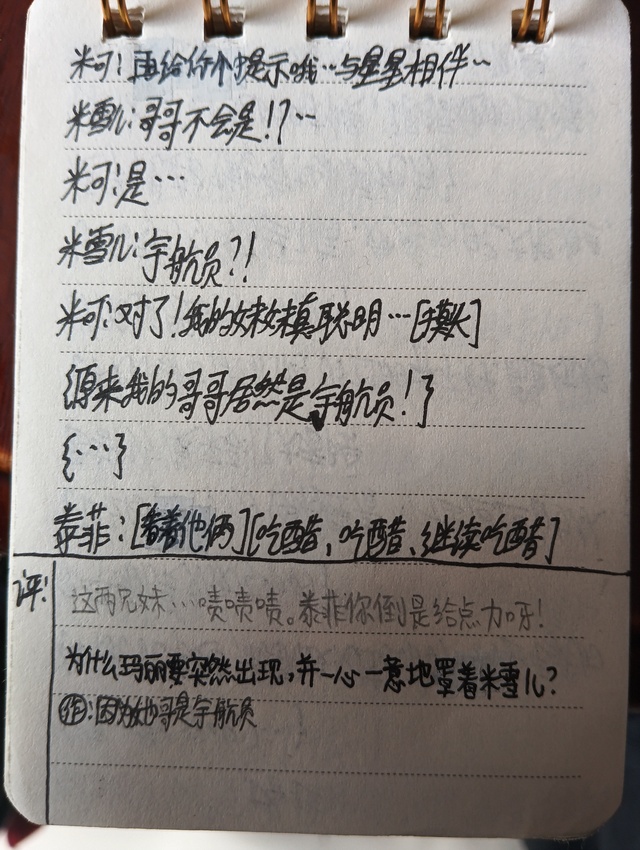 米可:再给你个提示哦…与星星相伴…
米雪儿:哥哥不会是!?…
米可:是…
米雪儿:宇航员?!
米可:对了!我的妹妹真聪明…[摸头]
{原来我的哥哥居然是宇航员!}
{…}
泰菲:[看着他俩][吃醋,吃醋、继续吃醋]
评:
这两兄妹…啧啧啧。泰菲你倒是给点力呀!
为什么玛丽要突然出现,并一心一意地罩着米雪儿?
作:因为她哥是宇航员